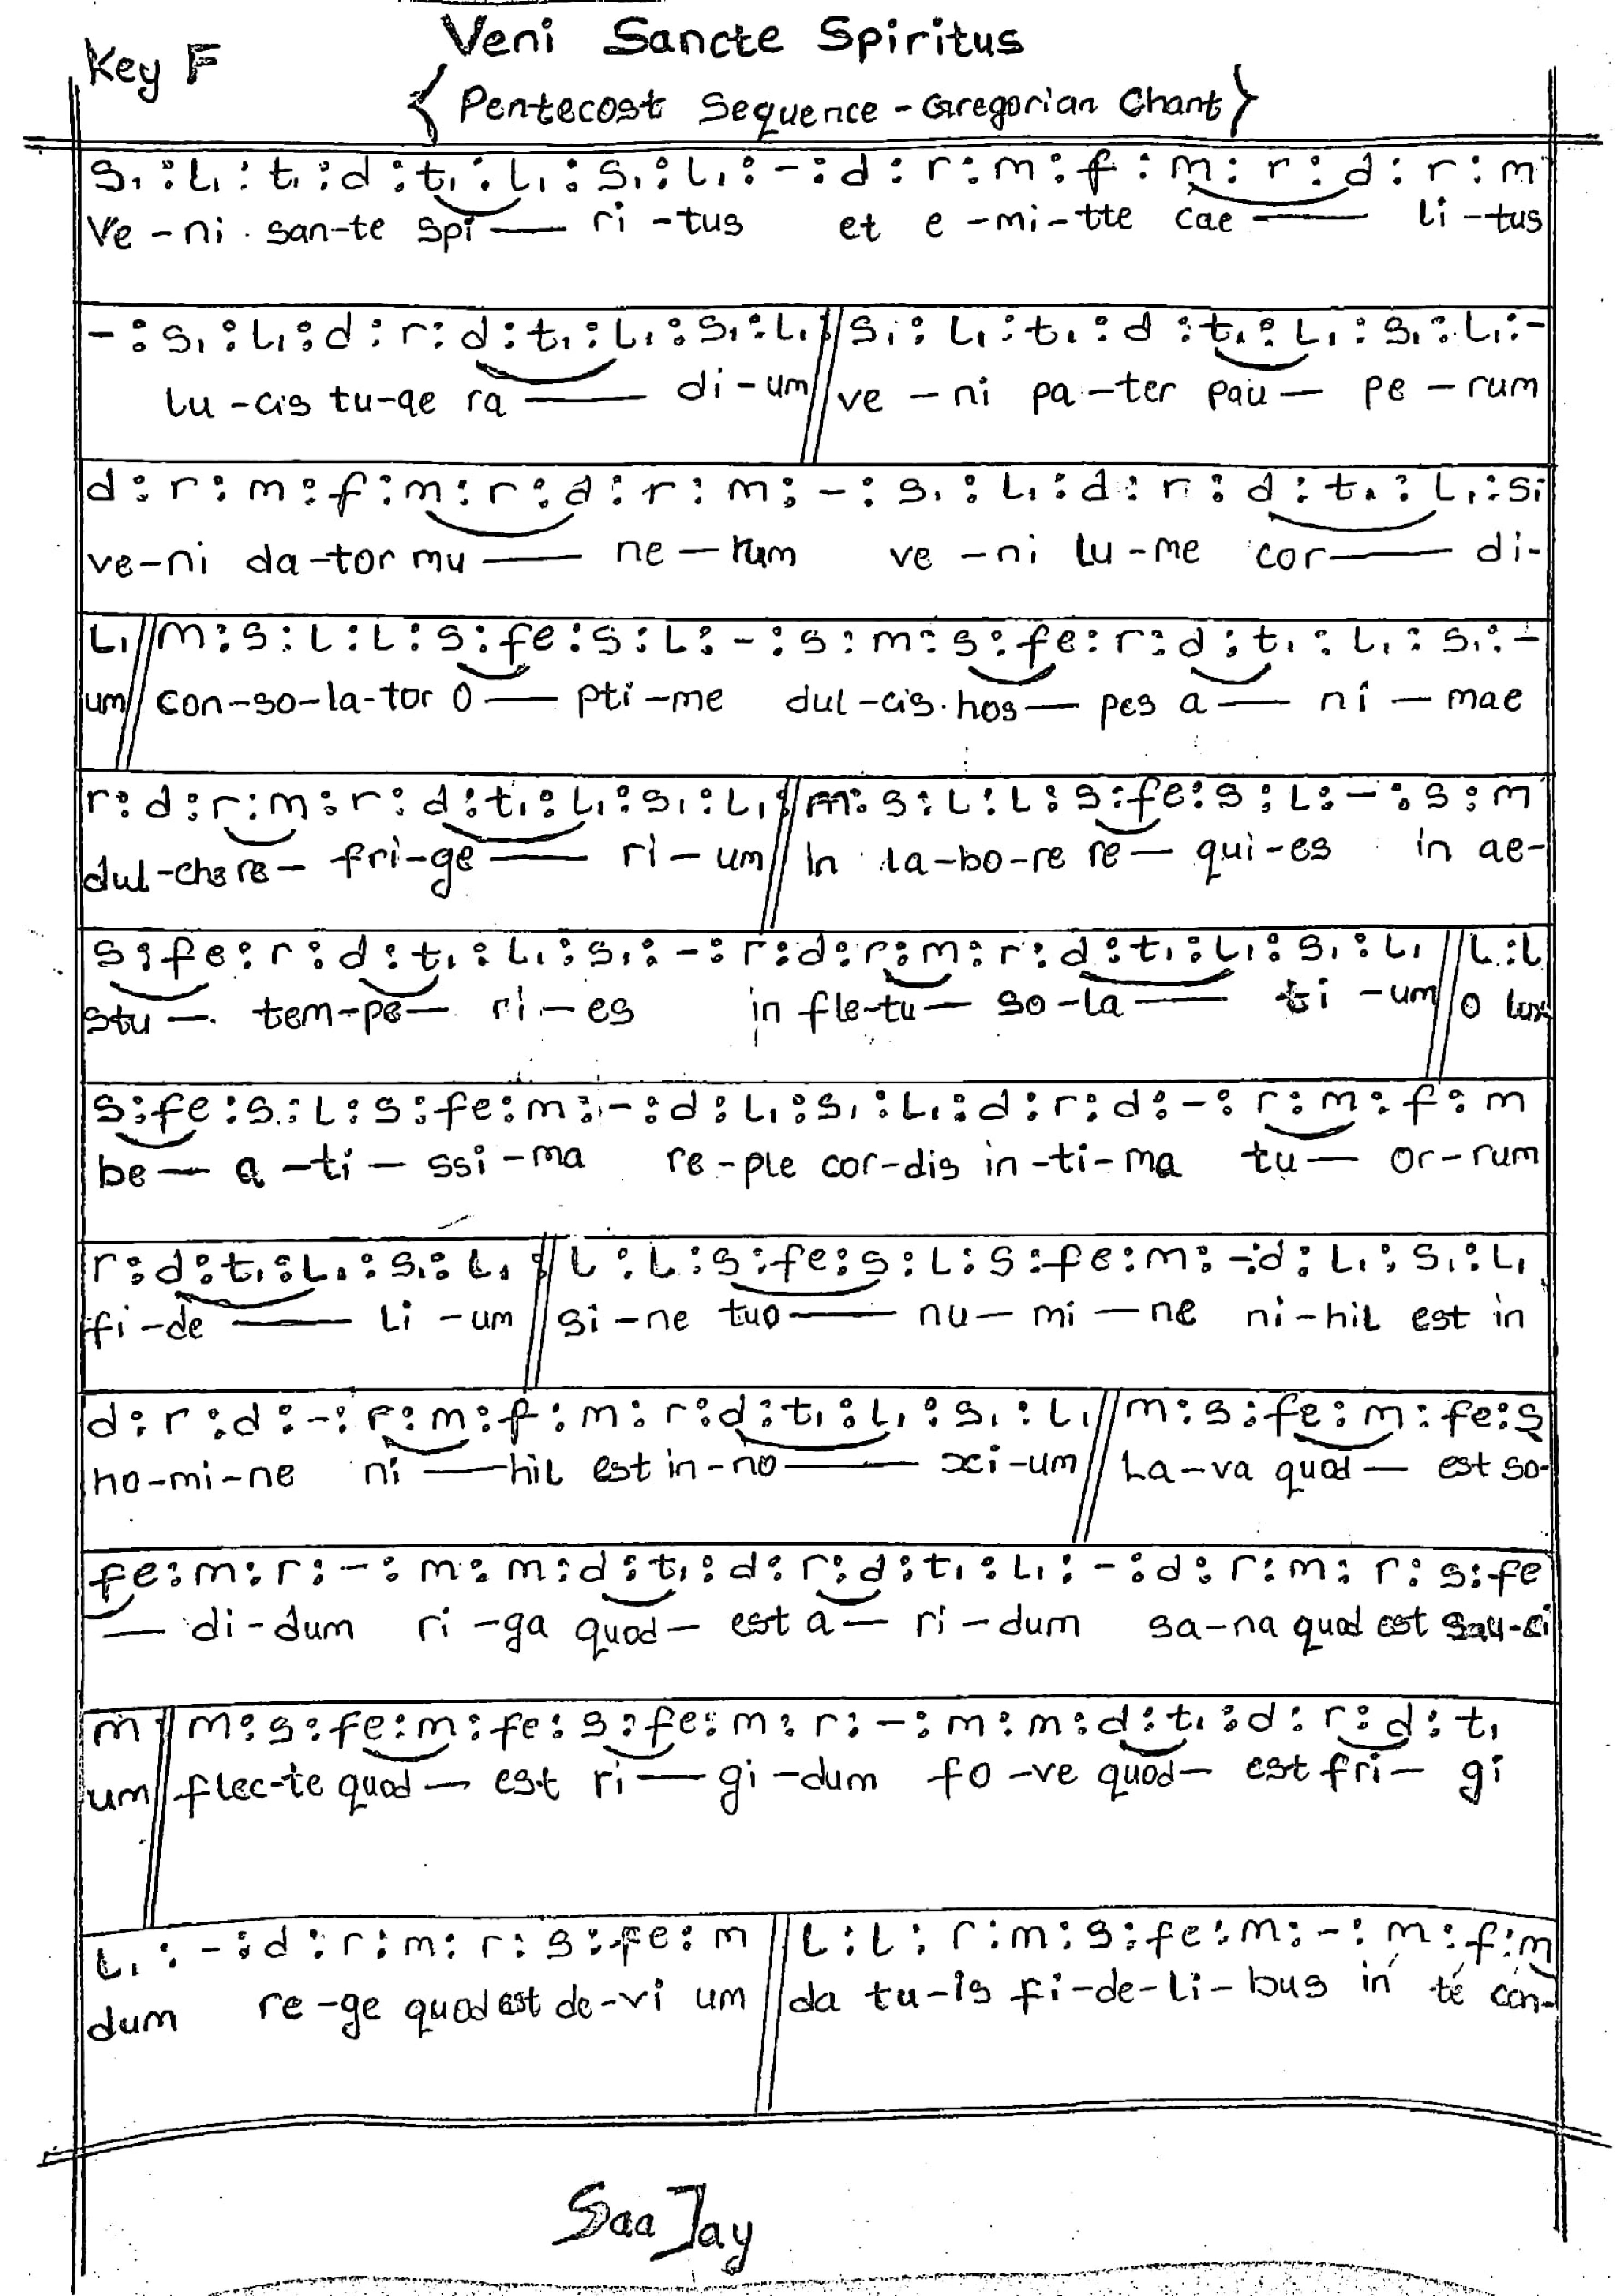 Veni Sancte Spiritus
Key F
{Pentecost Sequence - Gregorian Chant}
s₁ : l₁ : t₁ : d : t₁ : l₁ : s₁ : l₁ : - : d : r : m : f : m : r : d : r : m
Ve - ni . san-te spi — ri - tus et e - mi - tte cae — li - tus
- : s₁ : l₁ : d : r : d : t₁ : l₁ : s₁ : l₁ // s₁ : l₁ : t₁ : d : t₁ : l₁ : s₁ : l₁ : -
lu - cis tu-ae ra — di - um // ve - ni pa - ter pau — pe - rum
d : r : m : f : m : r : d : r : m : - : s₁ : l₁ : d : r : d : t₁ : l₁ : s₁
ve-ni da-tor mu — ne - rum ve - ni lu - me cor — di-
l₁ // m : s : l : l : s : fe : s : l : - : s : m : s : fe : r : d : t₁ : l₁ : s₁ : -
um // con-so-la-tor o — pti - me dul - cis . hos — pes a — ni - mae
r : d : r : m : r : d : t₁ : l₁ : s₁ : l₁ // m : s : l : l : s : fe : s : l : - : s : m
re - fri - ge — ri - um // in la-bo-re re — qui-es in ae-
s : fe : r : d : t₁ : l₁ : s₁ : - : r : d : r : m : r : d : t₁ : l₁ : s₁ : l₁ // l : l
stu — tem-pe — ri - es in fle-tu — so-la — ti - um // o lux
s : fe : s : l : s : fe : m : - : d : l₁ : s₁ : l₁ : d : r : d : - : r : m : f : m
be — a - ti - ssi - ma re - ple cor-dis in - ti - ma tu — or - rum
r : d : t₁ : l₁ : s₁ : l₁ // l : l : s : fe : s : l : s : fe : m : - : d : l₁ : s₁ : l₁
fi - de — li - um // si - ne tuo — nu - mi - ne ni - hil est in
d : r : d : - : r : m : f : m : r : d : t₁ : l₁ : s₁ : l₁ // m : s : fe : m : fe : s
ho-mi-ne ni — hil est in-no — xi-um // La-va quod — est so-
fe : m : r : - : m : m : d : t₁ : d : r : d : t₁ : l₁ : - : d : r : m : r : s : fe
— di-dum ri - ga quod — est a — ri - dum sa-na quod est sau-ci
m // m : s : fe : m : fe : s : fe : m : r : - : m : m : d : t₁ : d : r : d : t₁
um // flec-te quod — est ri — gi - dum fo - ve quod — est fri — gi
l₁ : - : d : r : m : r : s : fe : m // l : l : r : m : s : fe : m : - : m : f : m
dum re-ge quod est de-vi um // da tu-is fi-de-li-bus in te con-
Saa Jay